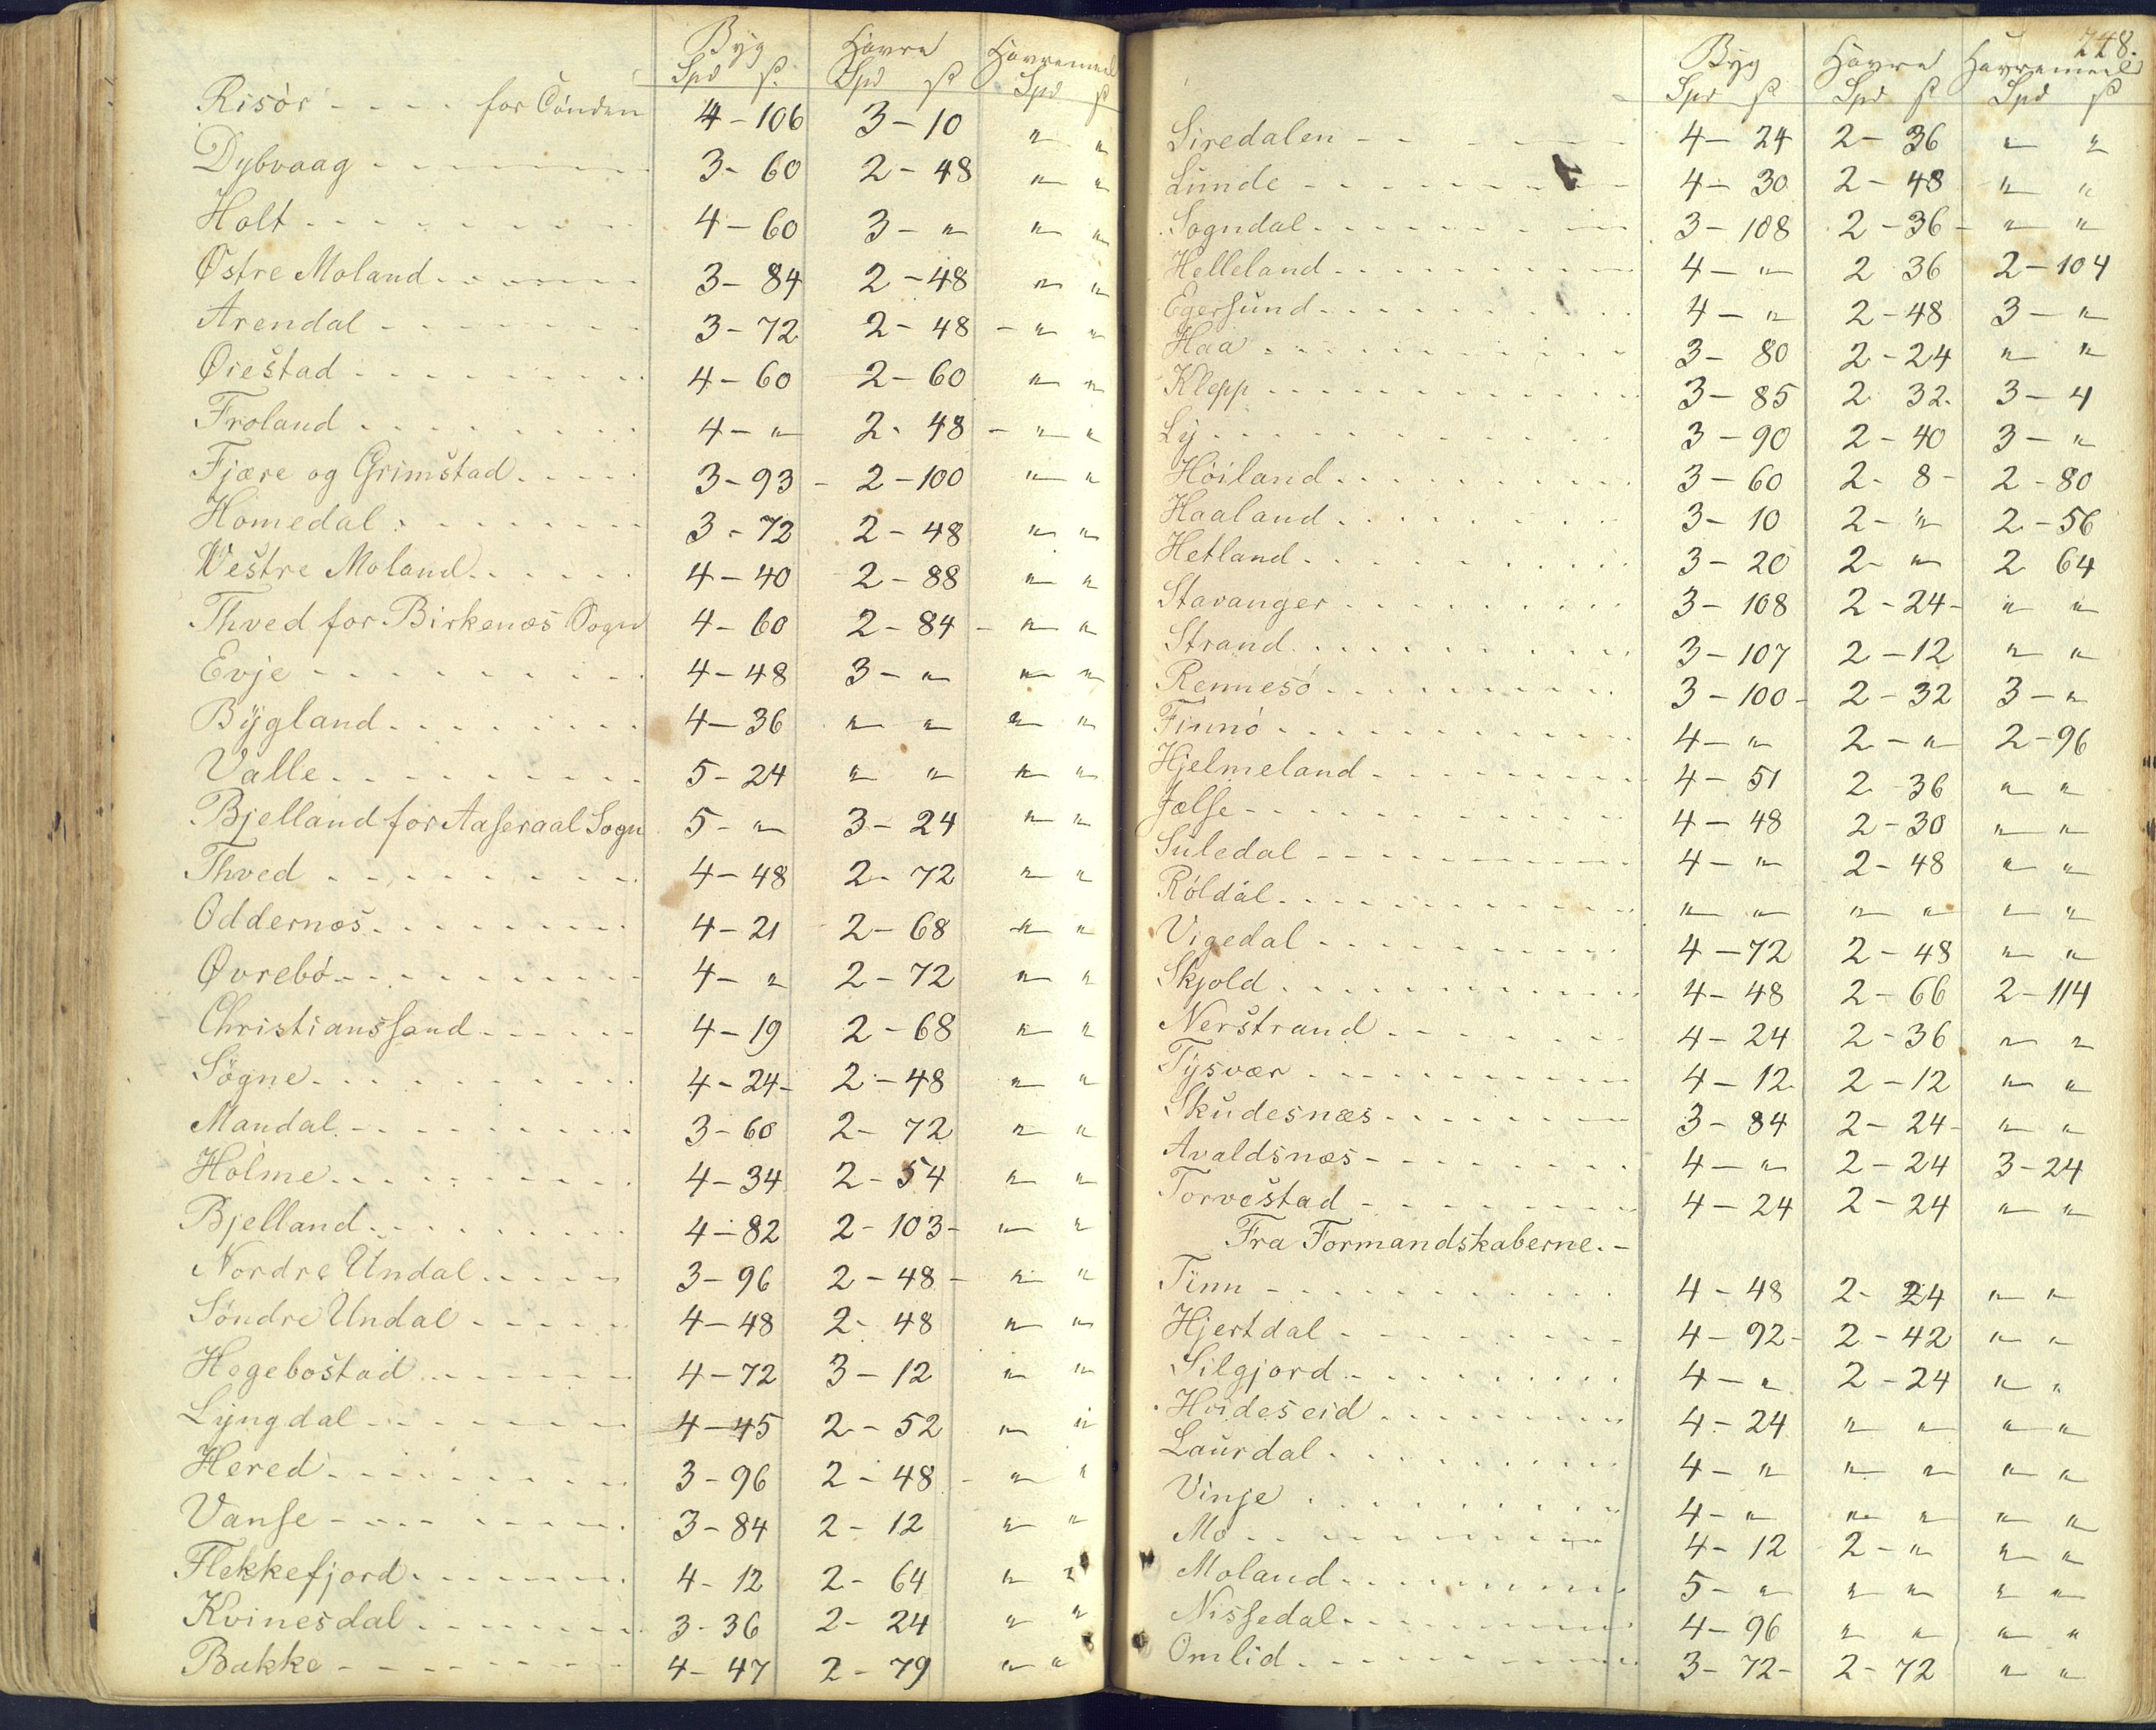 Byg Havre Havremeel
Spd ß. Spd ß Spd ß
Risór - - - - for Tónden 4 - 106 3 - 10 " "
Dybvaag - - - - - - 3 - 60 2 - 48 " "
Holt - - - - - - 4 - 60 3 - " " "
Østre Moland - - - - - 3 - 84 2 - 48 " "
Arendal - - - - - - 3 - 72 2 - 48 - " "
Øiestad - - - - - - 4 - 60 2 - 60 " "
Froland - - - - - - 4 - " 2 - 48 - " "
Fjære og Grimstad - - - - 3 - 93 - 2 - 100 " "
Homedal - - - - - - 3 - 72 2 - 48 " "
Westre Moland - - - - - 4 - 40 2 - 88 " "
Thved for Birkenæs Sogn 4 - 60 2 - 84 - " "
Evje - - - - - - 4 - 48 3 - " " "
Bÿgland - - - - - - 4 - 36 " " " "
Valle - - - - - - 5 - 24 " " " "
Bjelland for Aaseraal Sogn 5 - " 3 - 24 " "
Thved - - - - - - 4 - 48 2 - 72 " "
Oddernæs - - - - - - 4 - 21 2 - 68 " "
Øvrebó - - - - - - 4 - " 2 - 72 " "
Christianssand - - - - - 4 - 19 2 - 68 " "
Sögne - - - - - - 4 - 24 - 2 - 48 " "
Mandal - - - - - - 3 - 60 2 - 72 " "
Holme - - - - - - 4 - 34 2 - 54 " "
Bjelland - - - - - - 4 - 82 2 - 103 - " "
Nordre Undal - - - - 3 - 96 2 - 48 - " "
Söndre Undal - - - - - 4 - 48 2 - 48 " "
Hegebostad - - - - - 4 - 72 3 - 12 " "
Lÿngdal - - - - - - 4 - 45 2 - 52 " "
Hered - - - - - - 3 - 96 2 - 48 - " "
Vanse - - - - - - 3 - 84 2 - 12 " "
Flekkefjord - - - - - 4 - 12 2 - 64 " "
Kvinesdal - - - - - - 3 - 36 2 - 24 " "
Bakke - - - - - - 4 - 47 2 - 79 " "
248.
Byg Havre Havremeel
Spd ß Spd ß Spd ß
Siredalen - - - - 4 - 24 2 - 36 " "
Lunde - - - - - - 4 - 30 2 - 48 " "
Sogndal - - - - - - 3 - 108 2 - 36 - " "
Helleland - - - - - - 4 - " 2 36 2 - 104
Egersund - - - - - - 4 - " 2 - 48 3 - "
Haa - - - - - - 3 - 80 2 - 24 " "
Klepp - - - - - - 3 - 85 2 32. 3 - 4
Lÿ - - - - - - 3 - 90 2 - 40 3 - "
Höiland - - - - - - 3 - 60 2 - 8 - 2 - 80
Haaland - - - - - - 3 - 10 2 - " 2 - 56
Hetland - - - - - - 3 - 20 2 - " 2 64
Stavanger - - - - - - 3 - 108 2 - 24 - " "
Strand - - - - - - 3 - 107 2 - 12 " "
Rennesó - - - - - - 3 - 100 - 2 - 32 3 - "
Finnó - - - - - - 4 - " 2 - " 2 - 96
Hjelmeland - - - - - - 4 - 51 2 36 " "
Jælse - - - - - - 4 - 48 2 - 30 " "
Suledal - - - - - - 4 - " 2 - 48 " "
Röldal - - - - - - " " " " " "
Vigedal - - - - - - 4 - 72 2 - 48 " "
Skjold - - - - - - 4 - 48 2 - 66 2 - 114
Nerstrand - - - - - 4 - 24 2 - 36 " "
Tÿsvær - - - - - - 4 - 12 2 - 12 " "
Skudesnæs - - - - - - 3 - 84 2 - 24 - " "
Avaldsnæs - - - - - - 4 - " 2 - 24 3 - 24
Torvestad - - - - - - 4 - 24 2 - 24 " "
Fra Formandskaberne. -
Tinn - - - - - - 4 - 48 2 - 24 " "
Hjertdal - - - - - - 4 - 92 - 2 - 42 " "
Silgjord - - - - - - 4 - " 2 - 24 " "
Hvideseid - - - - - - 4 - 24 " " " "
Laurdal - - - - - - 4 - " " " " "
Vinje - - - - - - 4 - " " " " "
Mo - - - - - - 4 - 12 2 - " " "
Moland - - - - - - 5 - " " " " "
Nissedal - - - - - - 4 - 96 " " " "
Omlid - - - - - - 3 - 72 - 2 - 72 " "